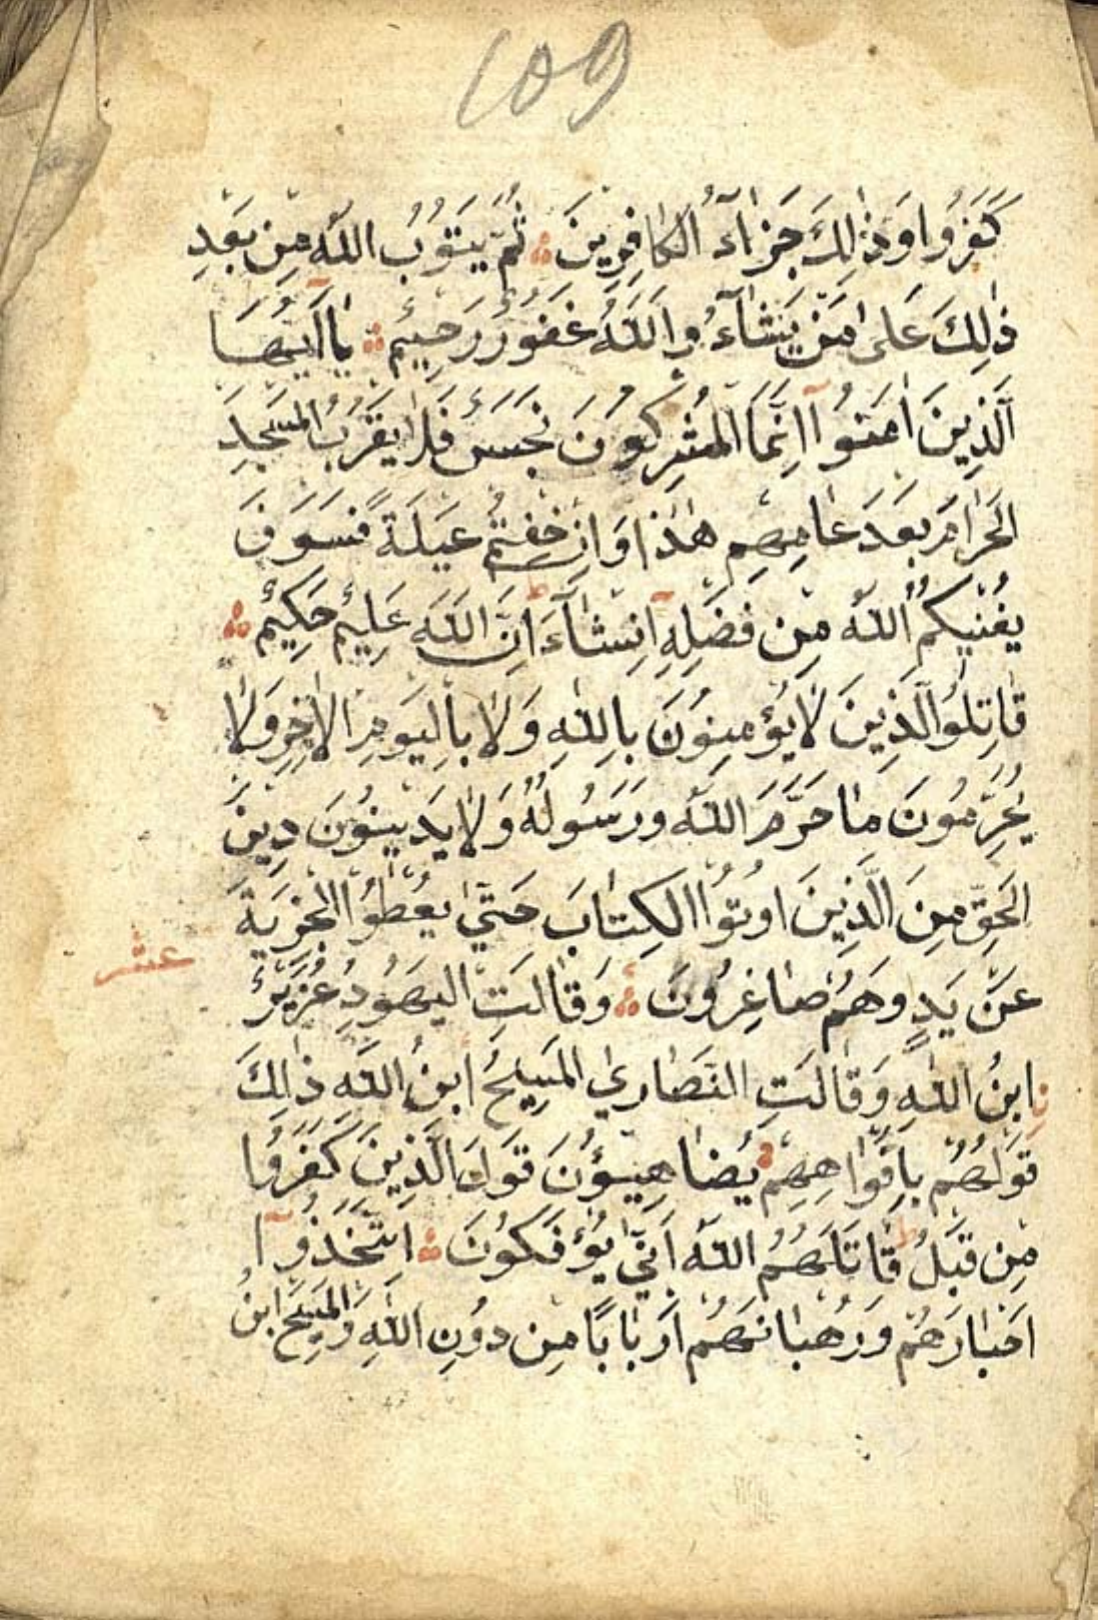 109
كَفَرُوا وَذٰلِكَ جَزَآءُ الْكَافِرِينَ ثُمَّ يَتُوبُ اللّٰهُ مِنْ بَعْدِ
ذٰلِكَ عَلىٰ مَنْ يَشَآءُ وَاللّٰهُ غَفُورٌ رَحِيمٌ يَآ اَيُّهَا
الَّذِينَ اٰمَنُوآ اِنَّمَا الْمُشْرِكُونَ نَجَسٌ فَلَا يَقْرَبُ الْمَسْجِدَ
الْحَرَامَ بَعْدَ عَامِهِمْ هٰذَا وَاِنْ خِفْتُمْ عَيْلَةً فَسَوْفَ
يُغْنِيكُمُ اللّٰهُ مِنْ فَضْلِهِ اِنْشَآءَ اِنَّ اللّٰهَ عَلِيمٌ حَكِيمٌ
قَاتِلُوا الَّذِينَ لَا يُؤْمِنُونَ بِاللّٰهِ وَلَا بِالْيَوْمِ الْاٰخِرِ وَلَا
يُحَرِّمُونَ مَا حَرَّمَ اللّٰهُ وَرَسُولُهُ وَلَا يَدِينُونَ دِينَ
الْحَقِّ مِنَ الَّذِينَ اُوتُوا الْكِتَابَ حَتّىٰ يُعْطُوا الْجِزْيَةَ
عشر
عَنْ يَدٍ وَهُمْ صَاغِرُونَ وَقَالَتِ الْيَهُودُ عُزَيْرٌ
نِ ابْنُ اللّٰهِ وَقَالَتِ النَّصَارىٰ الْمَسِيحُ ابْنُ اللّٰهِ ذٰلِكَ
قَوْلُهُمْ بِاَفْوَاهِهِمْ يُضَاهِيؤُنَ قَوْلَ الَّذِينَ كَفَرُوا
مِنْ قَبْلُ قَاتَلَهُمُ اللّٰهُ اَنّىٰ يُؤْفَكُونَ اتَّخَذُوآ
اَحْبَارَهُمْ وَرُهْبَانَهُمْ اَرْبَابًا مِنْ دُونِ اللّٰهِ وَالْمَسِيحَ ابْنَ